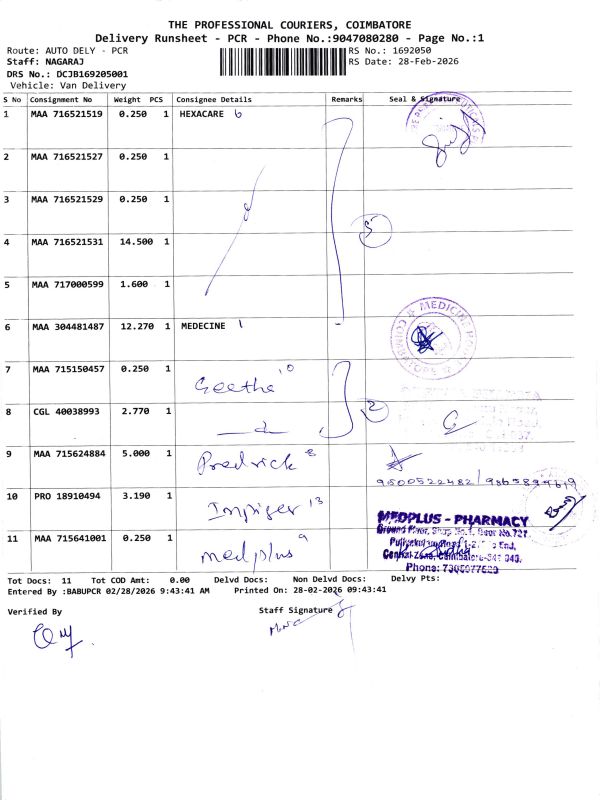 THE PROFESSIONAL COURIERS, COIMBATORE
Delivery Runsheet - PCR - Phone No.:9047080280 - Page No.:1
Route: AUTO DELY - PCR RS No.: 1692050
Staff: NAGARAJ RS Date: 28-Feb-2026
DRS No.: DCJB169205001
Vehicle: Van Delivery
S No Consignment No Weight PCS Consignee Details Remarks Seal & Signature
1 MAA 716521519 0.250 1 HEXACARE 6
2 MAA 716521527 0.250 1
3 MAA 716521529 0.250 1
4 MAA 716521531 14.500 1 5
5 MAA 717000599 1.600 1
6 MAA 304481487 12.270 1 MEDECINE 1
MEDICINE
COIMBATORE
7 MAA 715150457 0.250 1 Geetha 10
8 CGL 40038993 2.770 1 2
9 MAA 715624884 5.000 1 Predrick 8
10 PRO 18910494 3.190 1 Impiger 13
11 MAA 715641001 0.250 1 medplus 9
MEDPLUS - PHARMACY
Phone: 7305077629
Tot Docs: 11 Tot COD Amt: 0.00 Delvd Docs: Non Delvd Docs: Delvy Pts:
Entered By :BABUPCR 02/28/2026 9:43:41 AM Printed On: 28-02-2026 09:43:41
Verified By Staff Signature